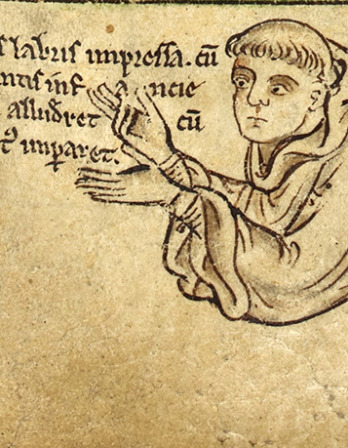 s labris impressa. cū
ntis inf a ncie
alludret cū
imꝑaret.